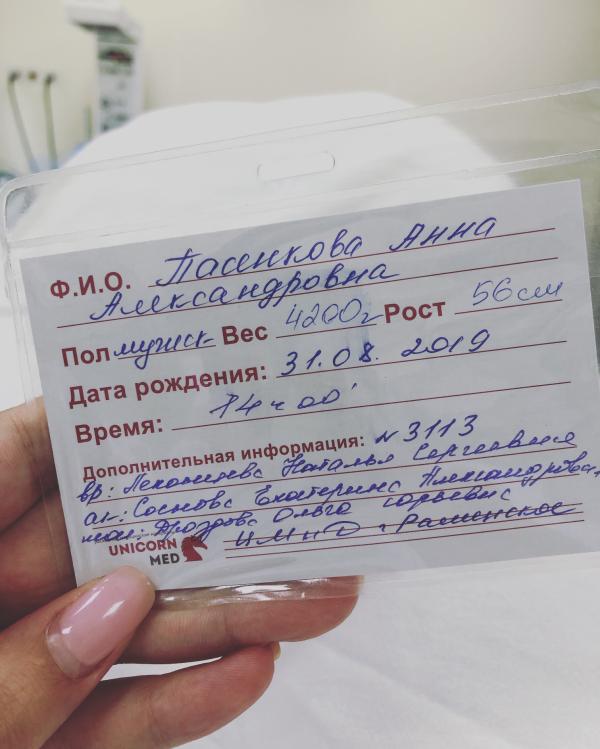 Ф.И.О. Пасенкова Анна
Александровна
Пол мужск. Вес 4200г Рост 56см
Дата рождения: 31.08.2019
Время: 14ч 00'
Дополнительная информация: №3113
вр: Наталья Сергеевна
ак.: Соснова Екатерина Александровна,
Дроздова Ольга Юрьевна
UNICORN
MED
г. Раменское